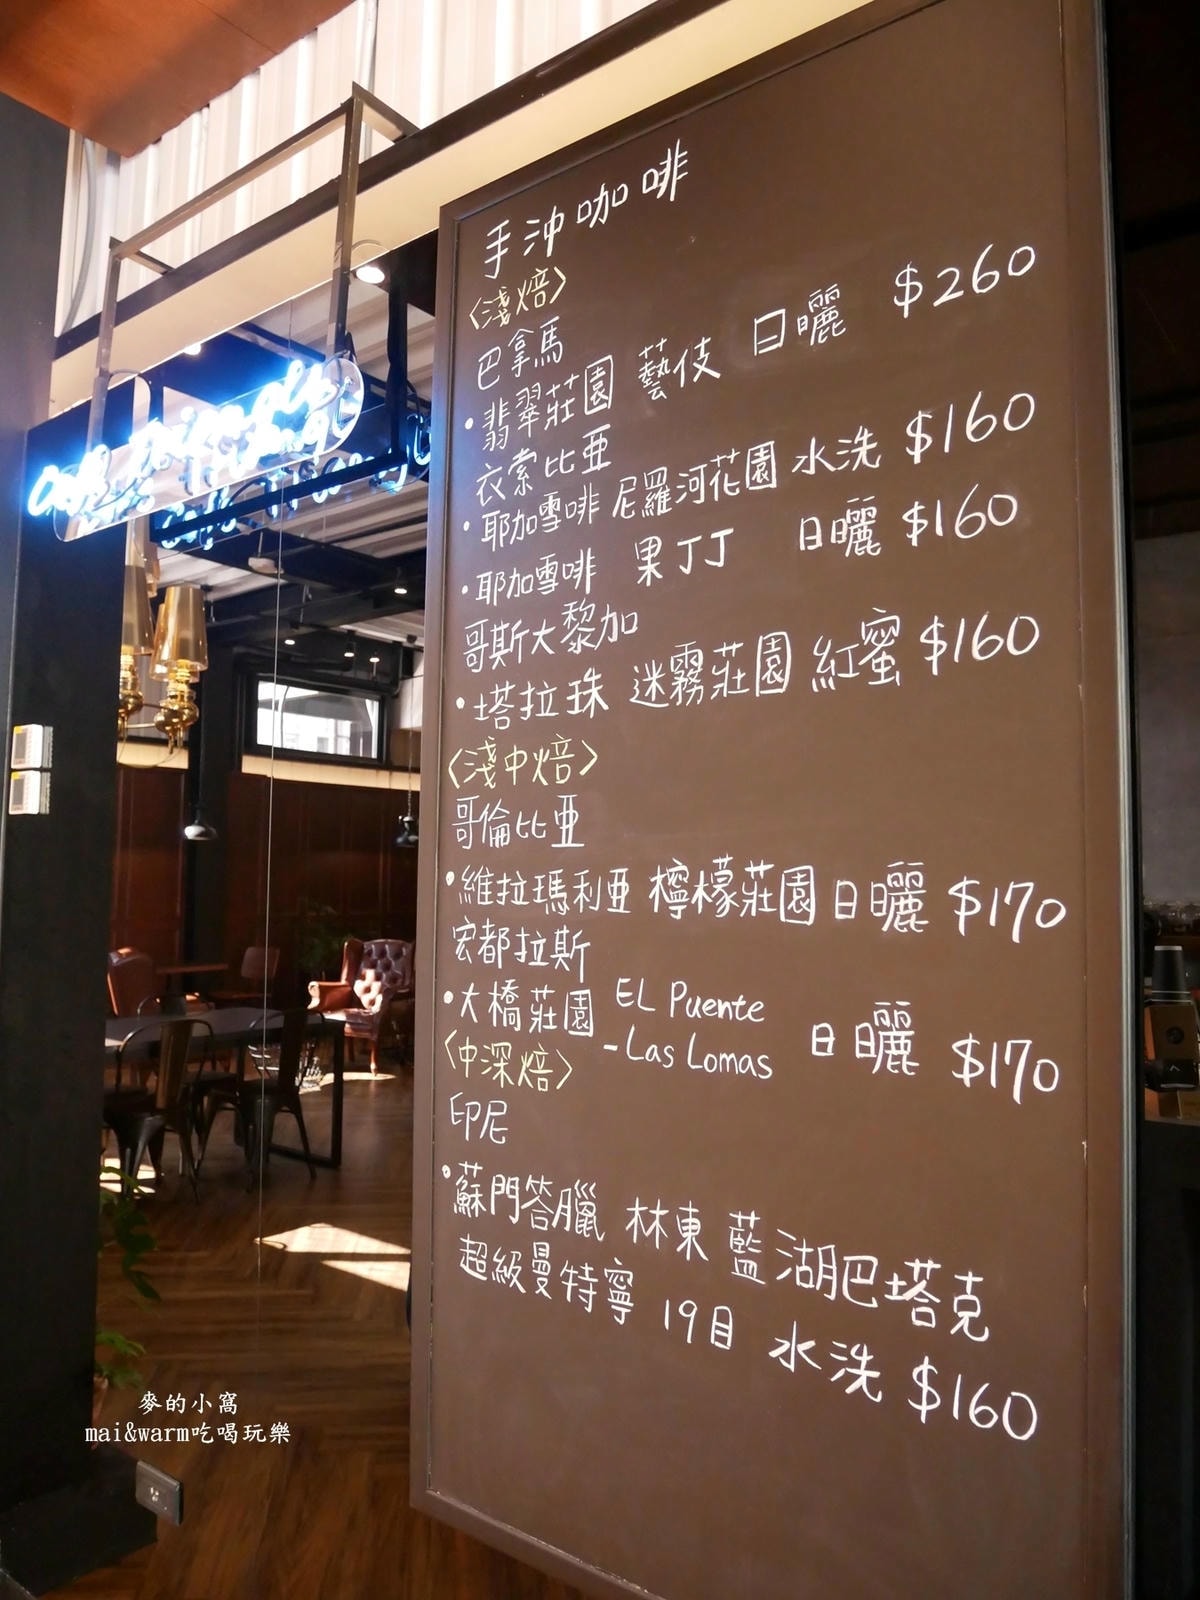 手沖咖啡
〈淺焙〉
巴拿馬
・翡翠莊園 藝伎 日曬 $260
衣索比亞
・耶加雪啡 尼羅河花園 水洗 $160
・耶加雪啡 果丁丁 日曬 $160
哥斯大黎加
・塔拉珠 迷霧莊園 紅蜜 $160
〈淺中焙〉
哥倫比亞
・維拉瑪利亞 檸檬莊園 日曬 $170
宏都拉斯
・大橋莊園 EL Puente
-Las Lomas 日曬 $170
〈中深焙〉
印尼
・蘇門答臘 林東 藍湖巴塔克
超級曼特寧 19目 水洗 $160
麥的小窩
mai&warm吃喝玩樂